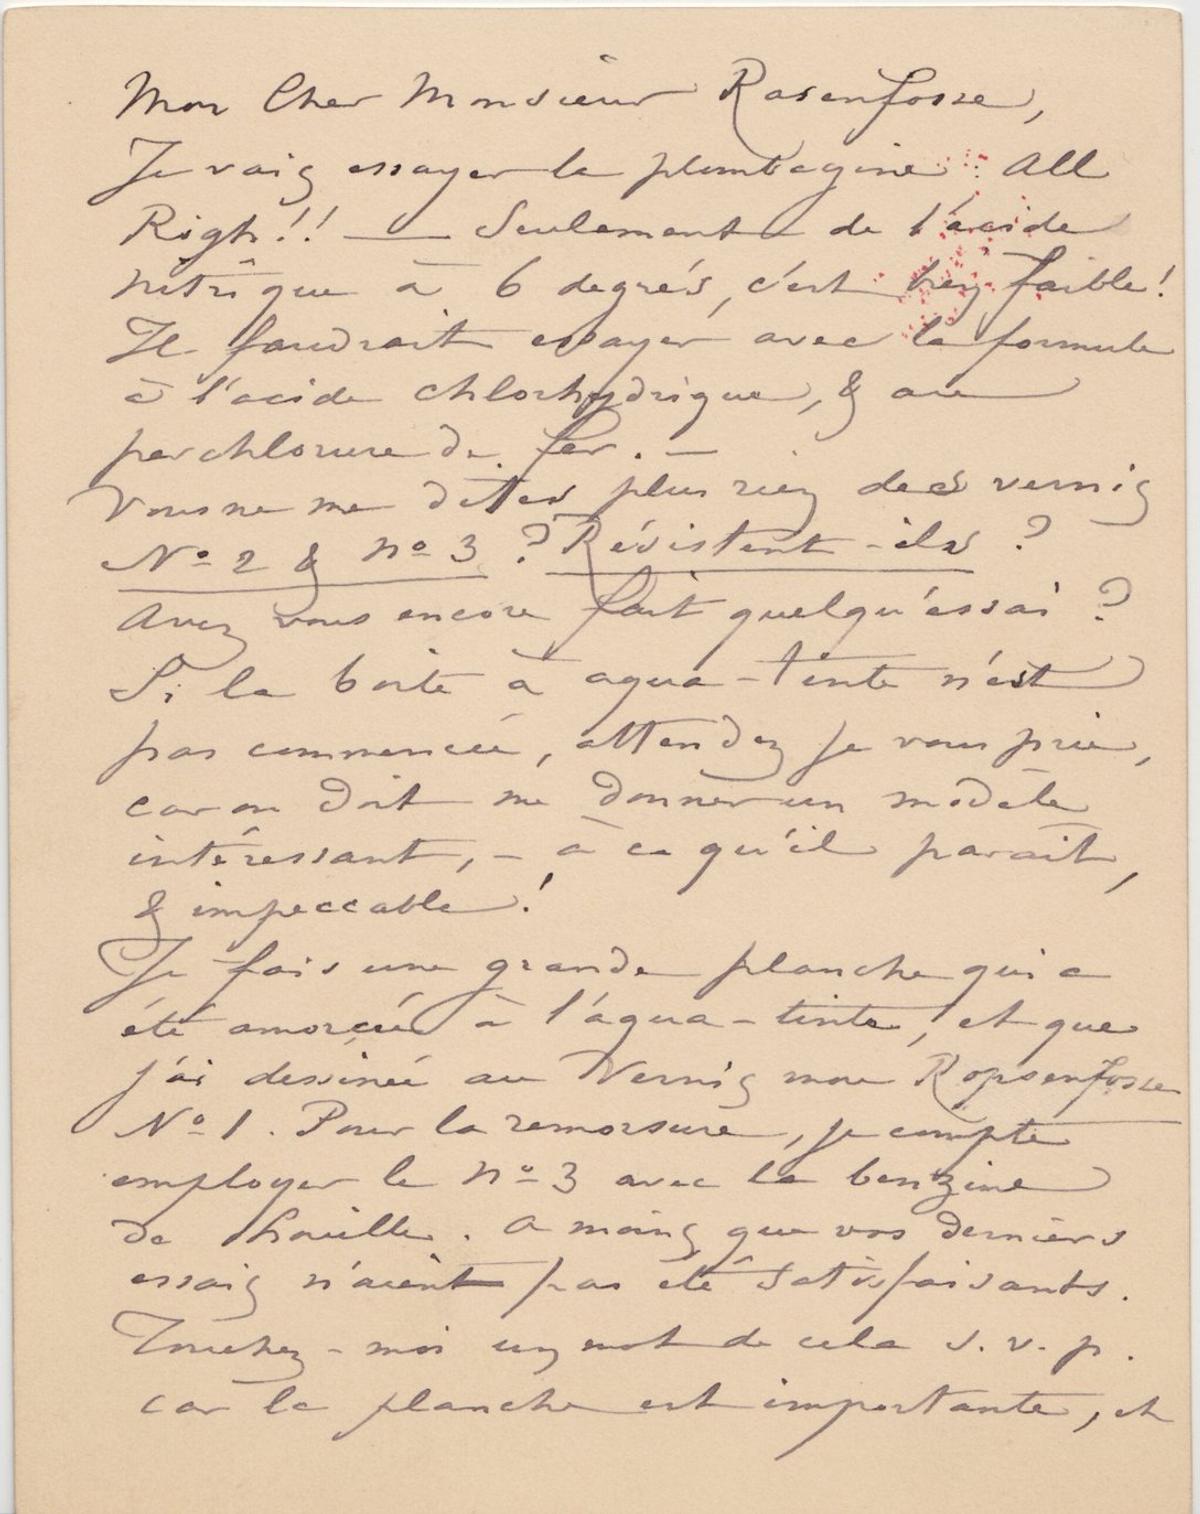 Mon Cher Monsieur Rasenfosse,
Je vais essayer la plombagine. All
Righ!! — Seulement de l'acide
nitrique à 6 degrés, c'est bien faible!
Il faudrait essayer avec la formule
à l'acide chlorhydrique, & au
perchlorure de fer. —
Vous ne me dites plus rien des vernis
No 2 & no 3 ? Résistent-ils ?
Avez vous encore fait quelqu'essai ?
Si la boite à aqua-tinte n'est
pas commencée, attendez je vous prie,
car on doit me donner un modèle
intéressant, – à ce qu'il parait,
& impeccable !
Je fais une grande planche qui a
été amorçée à l'aqua-tinte, et que
j'ai dessinée au Vernis mou Ropsenfosse
No 1. Pour la remorsure, je compte
employer le no 3 avec la benzine
de houille. A moins que vos derniers
essais n'aient pas été satisfaisants.
Touchez-moi un mot de cela s.v.p.
car la planche est importante, et